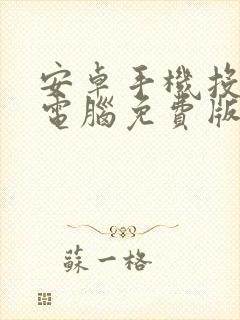 安卓手機投
電腦免費版
蘇一格